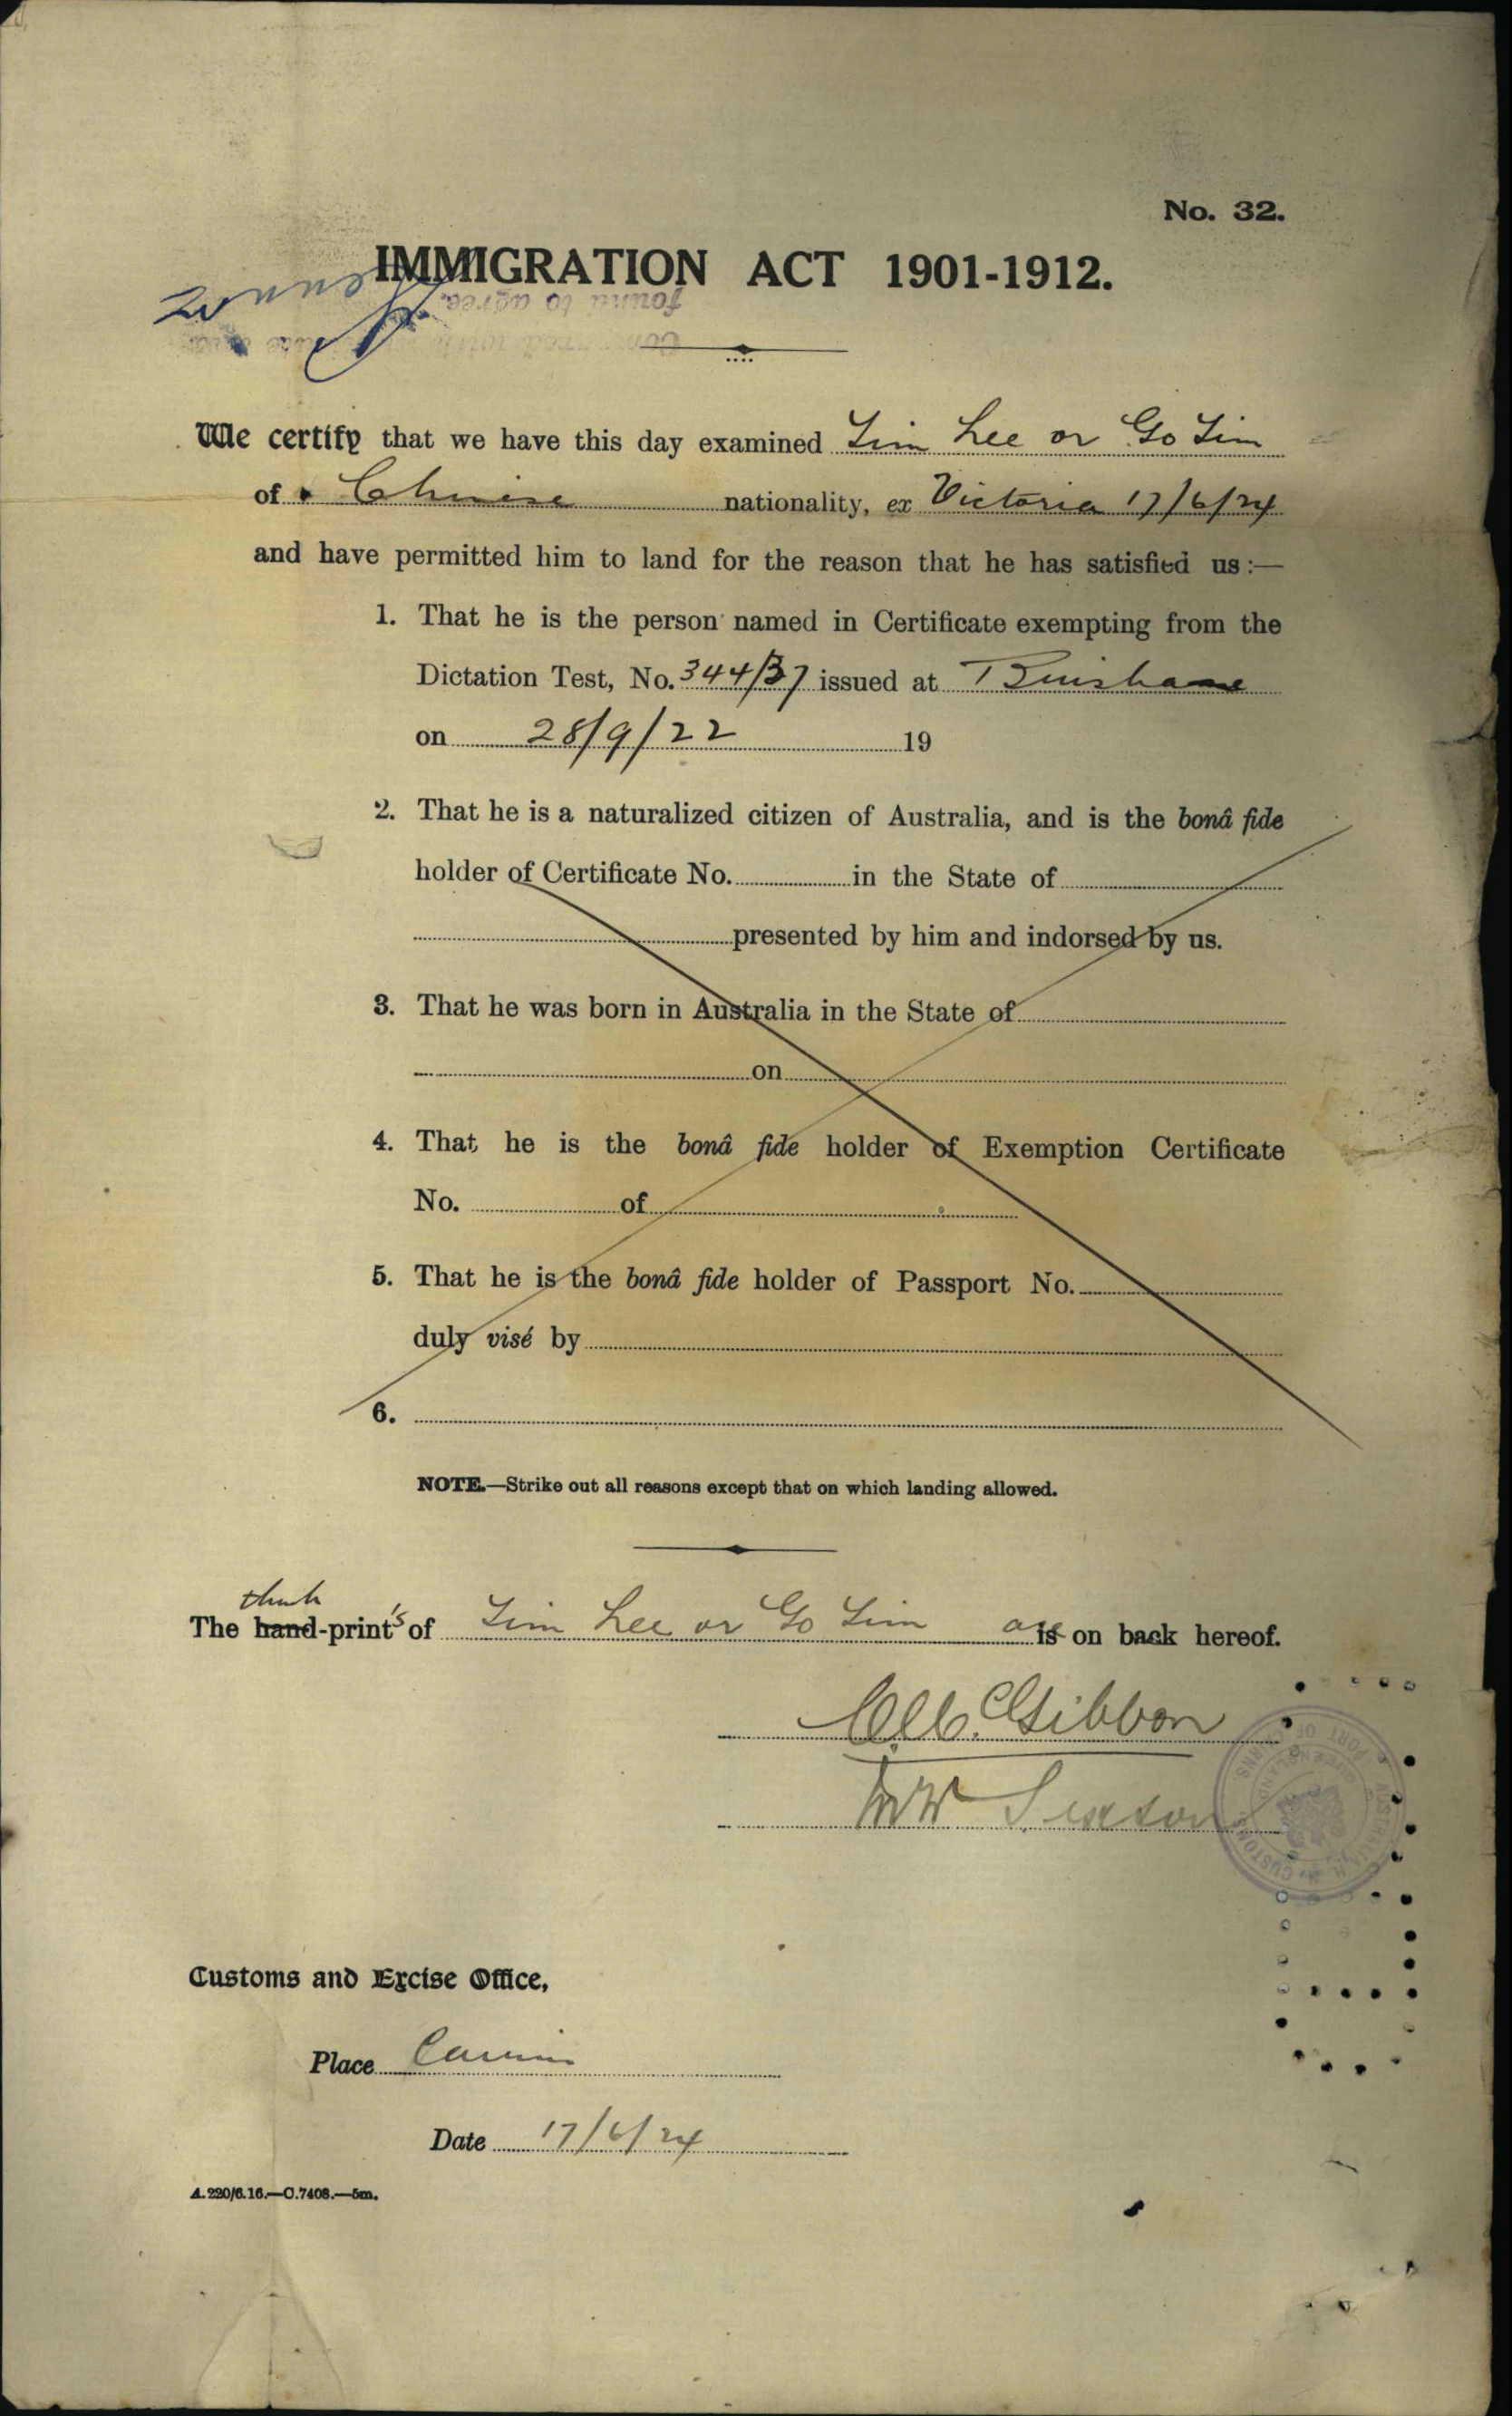 No. 32.
IMMIGRATION ACT 1901-1912.
found to agree.
We certify that we have this day examined Lim Lee or Go Lim
of Chinese nationality, ex Victoria 17/6/24
and have permitted him to land for the reason that he has satisfied us:—
1. That he is the person named in Certificate exempting from the
Dictation Test, No. 344/37 issued at Brisbane
on 28/9/22 19
2. That he is a naturalized citizen of Australia, and is the bonâ fide
holder of Certificate No. in the State of
presented by him and indorsed by us.
3. That he was born in Australia in the State of
on
4. That he is the bonâ fide holder of Exemption Certificate
No. of
5. That he is the bonâ fide holder of Passport No.
duly visé by
6.
NOTE.—Strike out all reasons except that on which landing allowed.
thumb
The hand-print's of Lim Lee or Go Lim are is on back hereof.
Gibbon
Sexton
PORT OF CAIRNS
QUEENSLAND
AUSTRALIA
CUSTOMS
Customs and Excise Office,
Place Cairns
Date 17/6/24
A.220/6.16.—C.7408.—5m.